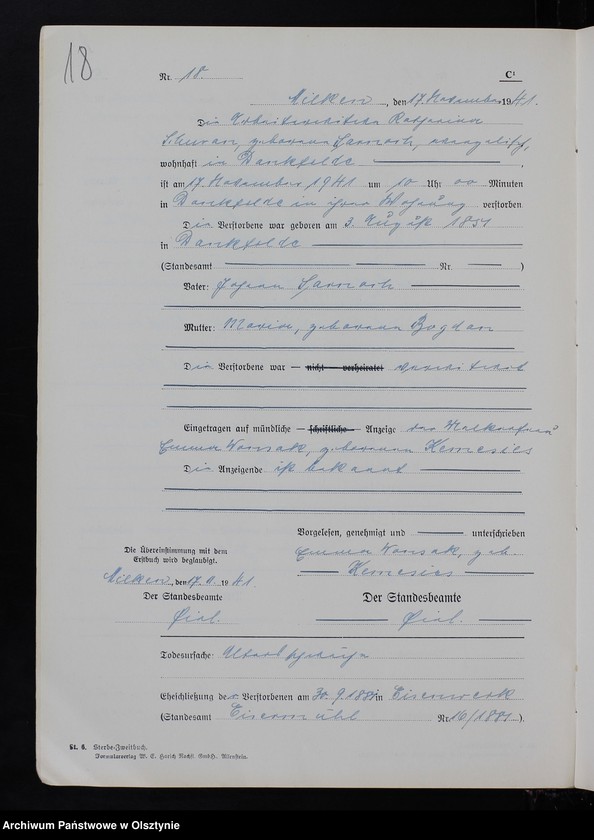 18
Nr. 18. C¹
Milken, den 17. November 1941.
Die Katharina
geborene evangelisch,
wohnhaft in Dankfelde,
ist am 17. November 1941 um 10 Uhr 00 Minuten
in Dankfelde in ihrer Wohnung verstorben.
Die Verstorbene war geboren am 3. August 1851
in Dankfelde
(Standesamt Nr. )
Vater: Johann
Mutter: Maria, geborene Bogdan
Die Verstorbene war — nicht — verheiratet verwitwet
Eingetragen auf mündliche — schriftliche — Anzeige der
Emma geborene
Die Anzeigende ist bekannt
Vorgelesen, genehmigt und unterschrieben
Emma geb.
Die Übereinstimmung mit dem
Erstbuch wird beglaubigt.
Milken, den 17. 11. 1941.
Der Standesbeamte
Der Standesbeamte
Todesursache: Altersschwäche
Eheschließung der Verstorbenen am 30. 9. 1881 in Eisenwerk
(Standesamt Eisermühl Nr. 16/1881).
St. C. Sterbe-Zweitbuch.
Formularverlag W. E. Harich Nachf. GmbH. Allenstein.
Archiwum Państwowe w Olsztynie